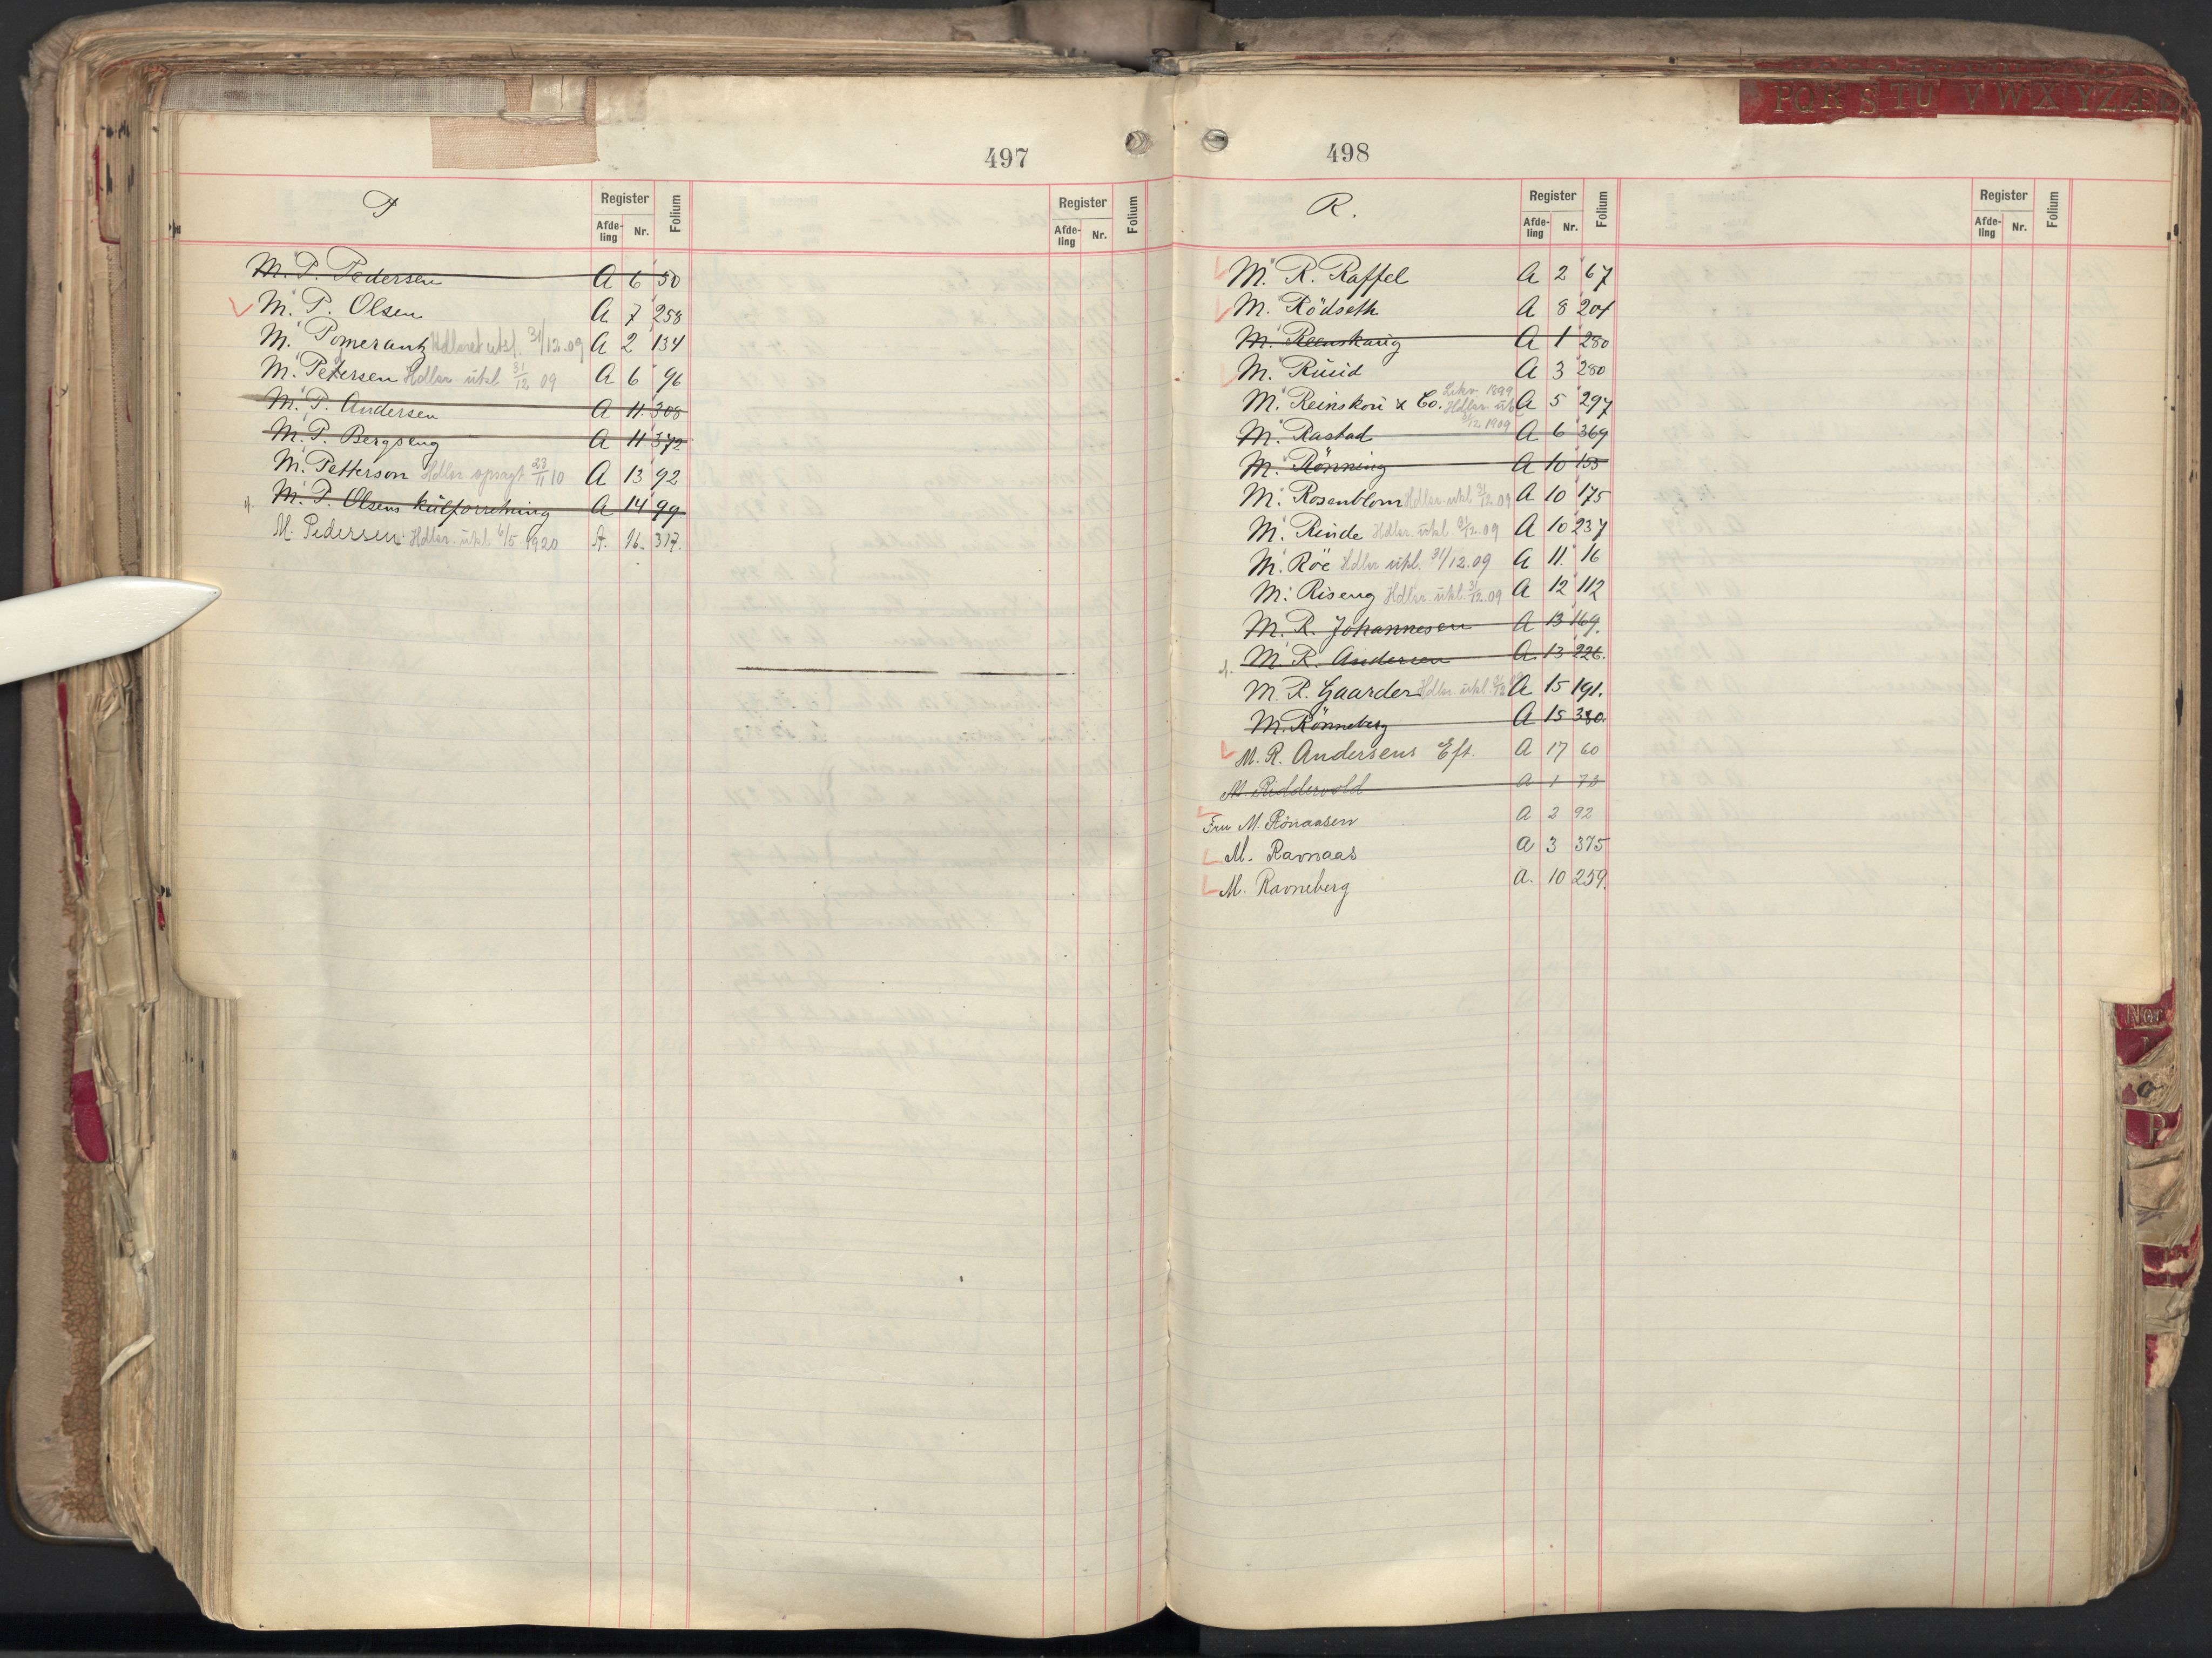 497
P
Register
Afde-
ling
Nr.
Folium
Register
Afde-
ling
Nr.
Folium
M. P. Pedersen A 6 50
M. P. Olsen A 7 258
M. Pomerantz Hdlsret utsl. 31/12.09 A 2 134
M. Petersen Hdlsr. utsl. 31/12 09 A 6 96
M. P. Andersen A 11 308
M. P. Bergseng A 11 372
M. Petterson Hdlsr. opsagt 23/11 10 A 13 92
M. P. Olsens kulforretning A 14 99
M. Pedersen Hdlsr. utsl. 6/5 1920 A. 16. 317.
PQR S T U V W X Y Z Æ
498
R.
Register
Afde-
ling
Nr.
Folium
Register
Afde-
ling
Nr.
Folium
M. R. Raffel A 2 67
M. Rödseth A 8 204
M. Reenskaug A 1 280
M. Ruud A 3 280
M. Reinskou & Co. Likv. 1899 Hdlsr. utsl. 31/12 1909 A 5 297
M. Rastad A 6 369
M. Rönning A 10 155
M. Rosenblom Hdlsr. utsl. 31/12.09 A 10 175
M. Rinde Hdlsr. utsl. 31/12.09 A 10 237
M. Röe Hdlsr utsl. 31/12.09 A 11. 16
M. Riseng Hdlsr. utsl. 31/12.09 A 12 112
M. R. Johannesen A 13 169.
M. R. Andersen A. 13 226.
M. R. Gaarder Hdlsr. utsl. A 15 191.
M. Rönneberg A 15 380.
M. R. Andersens Eft. A 17 60
M. Riddervold A 1 73
Fru M. Rönaasen A 2 92
M. Ravnaas A 3 375
M. Ravneberg A. 10 259.
Nor
P